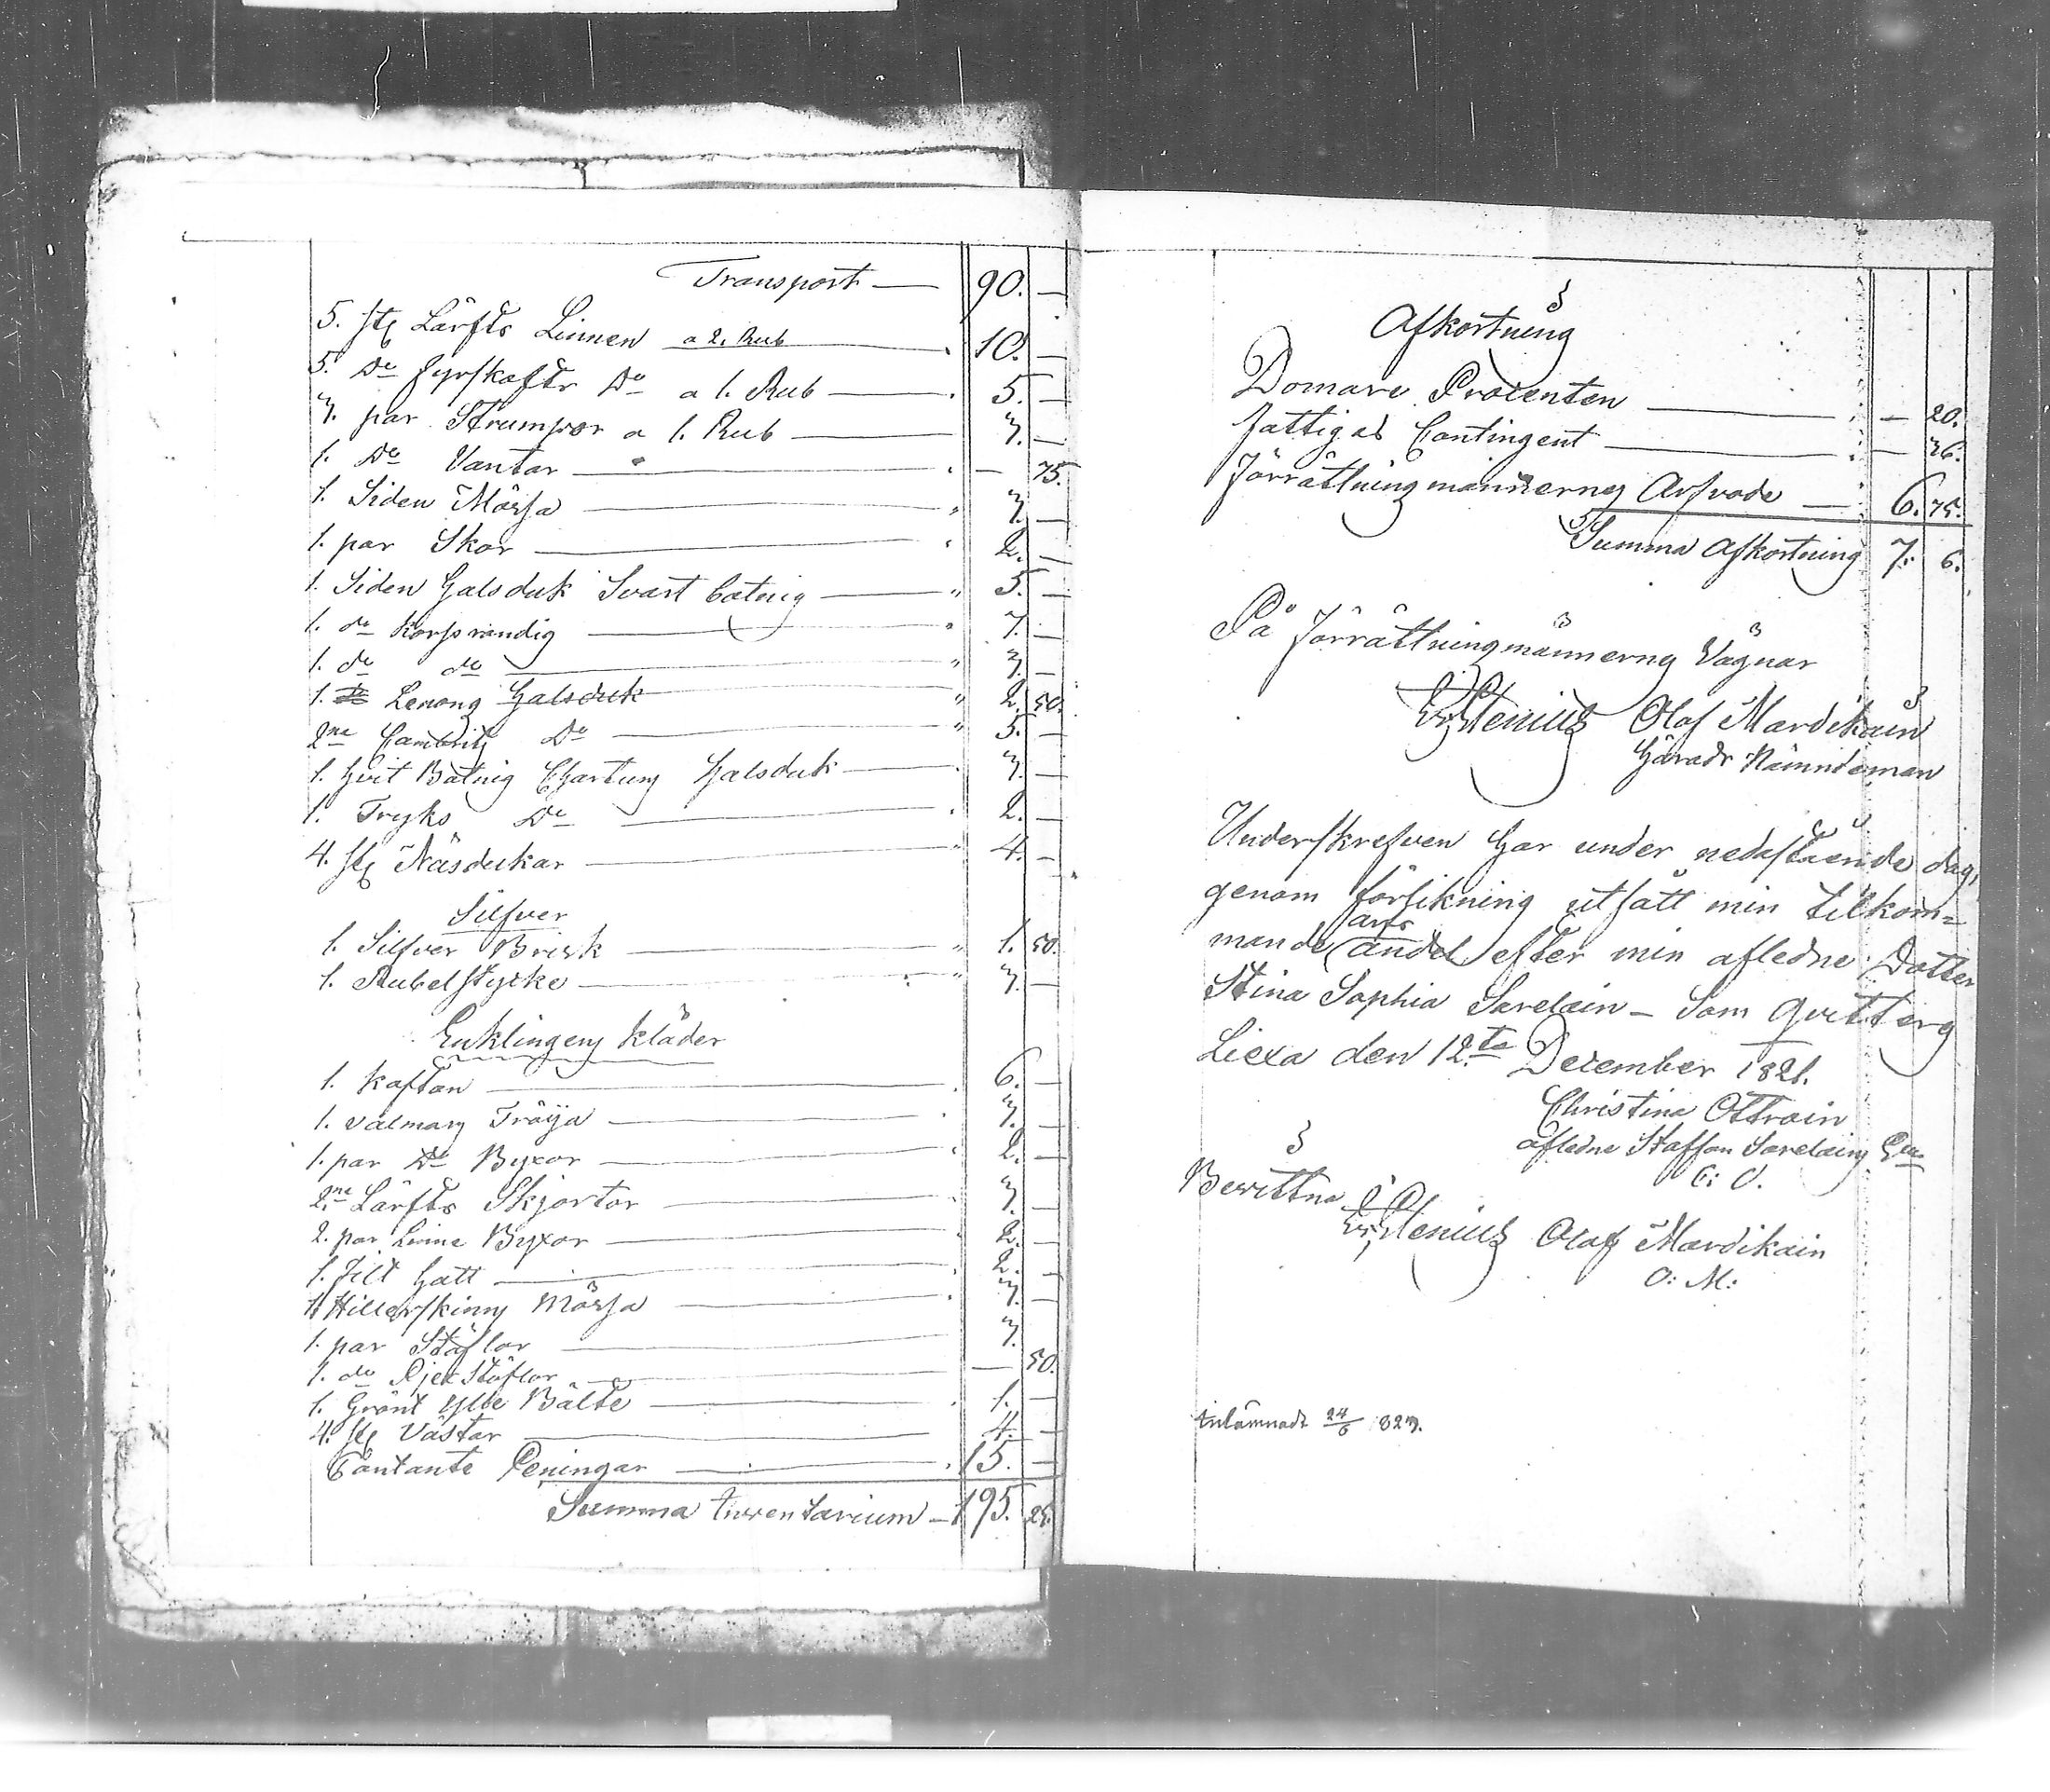 Transport — 90. —
5. st Lärfts Linnen a 2. Rub — 10. —
5. Do Fyrskafts Do a 1. Rub — 5. —
3. par Strumpor a 1. Rub — 3. —
1. Do Vantar — — 75.
1. Siden Mössa — 3. —
1. par Skor — 2. —
1. Siden Halsduk Svart — 5. —
1. do Korssrandig — 7. —
1. do do — 3. —
1. Lenong Halsduk — 2. 50.
2ne Do — 5. —
1. Hvit Halsduk — 3. —
1. Tryks Do — 2. —
4. st Näsdukar — 4. —
Silfver
1. Silfver Brisk — 1. 50.
1. Rubelstycke — 3. —
Enklingens Kläder
1. Kaftan — 6. —
1. Valmars Tröija — 3. —
1. par Do Byxor — 2. —
2ne Lärfts Skjortor — 3. —
2. par Linne Byxor — 2. —
1. Filt Hatt — 2. —
1. Hillerskinns Mössa — 3. —
1. par Stöflor — 3.
1. do Stöflor — — 50.
1. Grönt Ylle Bälte — 1. —
4. st Västar — 4. —
Contante Peningar — 15. —
Summa Inventarium — 195. 25.
Afkortning
Domare Procenten — — 20.
Fattigas Contingent — — 36.
Förrättningsmännernes Arfvode — 6. 75.
Summa Afkortning 7. 6.
På Förrättningsmännernes Vägnar
Olof Mardikain
Härads Nämndeman
Underskrefven har under nedastående dag,
genom förlikning utfått min tillkom=
mande arfs andel efter min afledne Dotter
Stina Sophia Sarelain – Som qvitteras
Liexa den 12te December 1821.
Christina Ottrain
afledne Staffan Sarelains
C: O.
Bevittna
Olof Mardikain
O: M:
Inlämnadt 24/6 823.